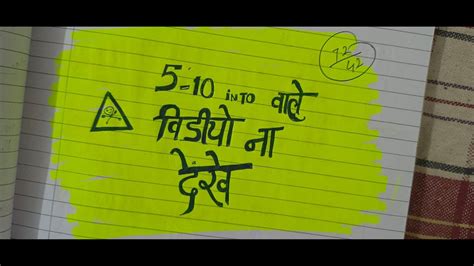 42/42
5-10 INTO वाले
विडीयो ना
देखे